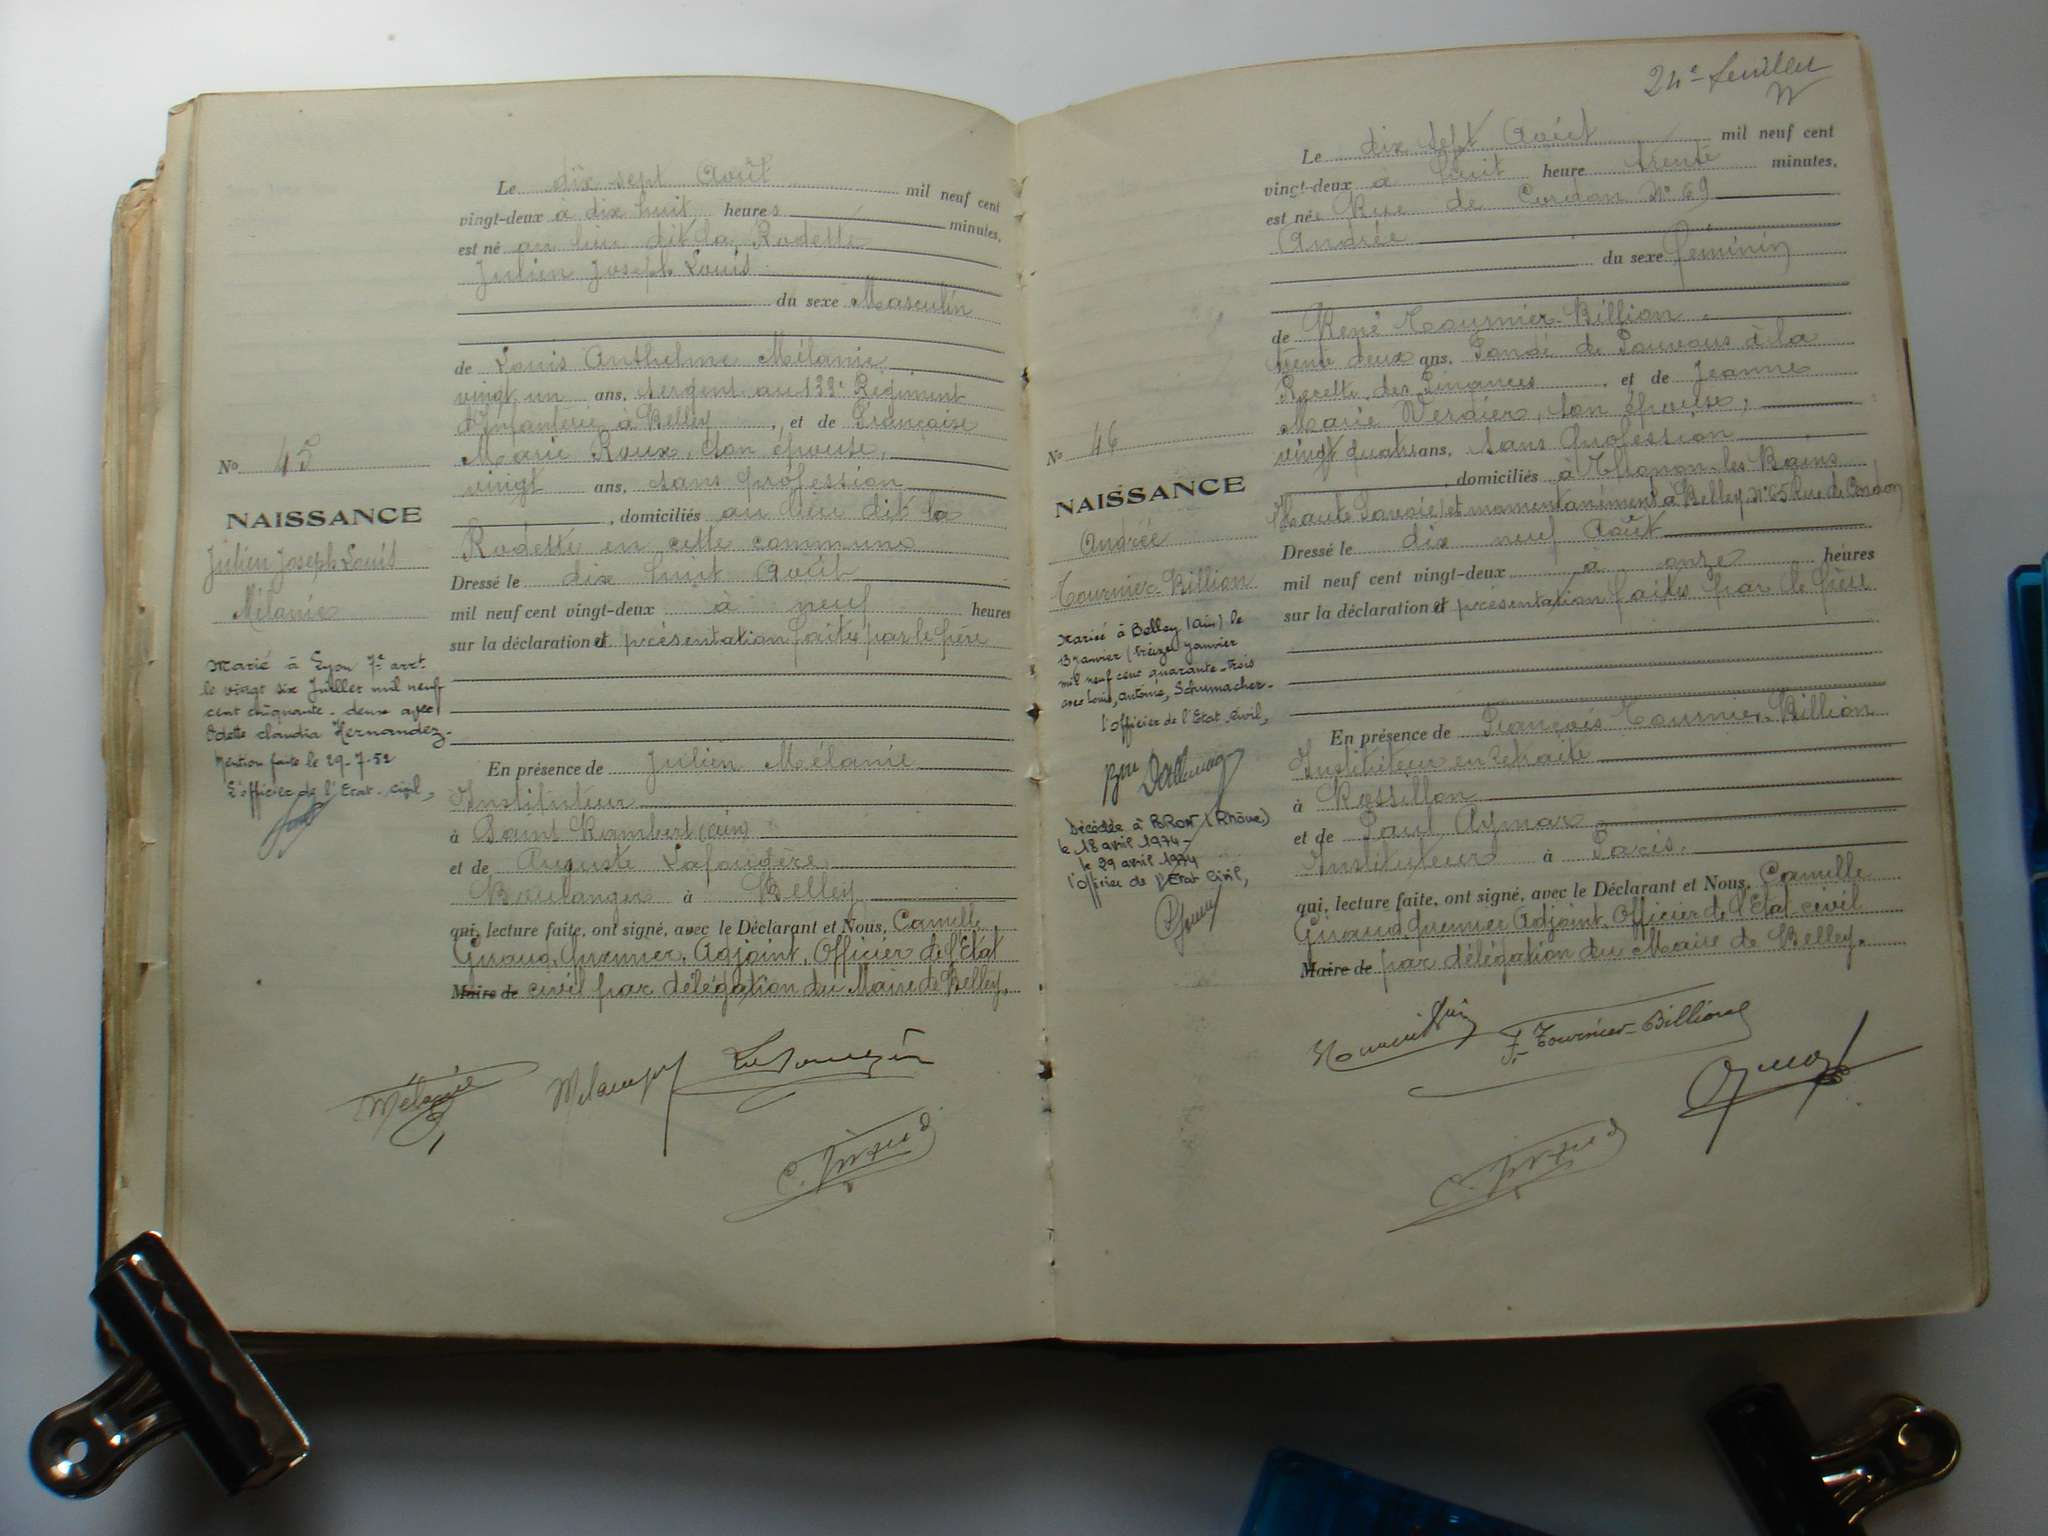 Le dix sept Août mil neuf cent
vingt-deux à dix huit heures minutes,
est né au lieu dit la Rodette
Julien Joseph Louis
du sexe Masculin
de Louis Anthelme Mélanie
vingt un ans, sergent au 133e Régiment
d'Infanterie à Belley, et de Françoise
Marie Roux, son épouse,
vingt ans, sans profession
, domiciliés au lieu dit la
Rodette en cette commune
Dressé le dix huit Août
mil neuf cent vingt-deux à neuf heures
sur la déclaration et présentation faites par le père
En présence de Julien Mélanie
Instituteur
à Saint Rambert (Ain)
et de Auguste Lafougère
Boulanger à Belley
qui, lecture faite, ont signé, avec le Déclarant et Nous, Camille
Giraud, premier Adjoint, Officier de l'Etat
Maire de civil par délégation du Maire de Belley.
Mélanie
C. Giraud
No 45
NAISSANCE
Julien Joseph Louis
Mélanie
Marié à Lyon 7e arrt
le vingt six Juillet mil neuf
cent cinquante-deux avec
Odette Claudia Hernandez-
Mention faite le 29-7-52
L'officier de l'Etat-civil,
24e feuillet
Le dix sept Août mil neuf cent
vingt-deux à huit heure trente minutes,
est née Rue de Cordon No 69
Andrée
du sexe féminin
de René Tournier-Billion
trente deux ans, Fondé de Pouvoirs à la
Recette des Finances, et de Jeanne
Marie Verdier, son épouse,
vingt quatre ans, sans profession
, domiciliés à Thonon-les Bains
(Haute Savoie) et momentanément à Belley, No 65 Rue de Cordon
Dressé le dix neuf Août
mil neuf cent vingt-deux à onze heures
sur la déclaration et présentation faites par le père
En présence de François Tournier-Billion
Instituteur en retraite
à Rossillon
et de Paul Aymar
Instituteur à Paris.
qui, lecture faite, ont signé, avec le Déclarant et Nous, Camille
Giraud, premier Adjoint, Officier de l'Etat civil
Maire de par délégation du Maire de Belley.
F. Tournier-Billion
C. Giraud
No 46
NAISSANCE
Andrée
Tournier-Billion
Mariée à Belley (Ain) le
13 janvier (treize) janvier
mil neuf cent quarante-trois
avec Louis, Antoine, Schumacher-
l'Officier de l'Etat-Civil,
Décédée à BRON (Rhône)
le 18 avril 1974-
le 29 avril 1974
l'Officier de l'Etat Civil,